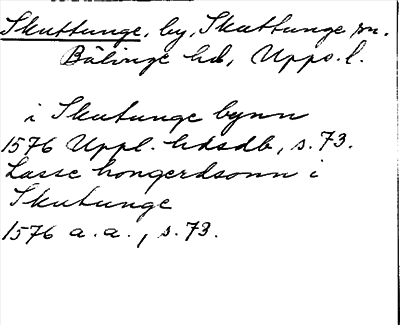 Skuttunge, by, Skuttunge sn.
Bälinge hd, Upps. l.
i Skutunge bynn
1576 Uppl. hdsdb, s. 73.
Lasse hongerdsonn i
Skutunge
1576 a. a., s. 73.